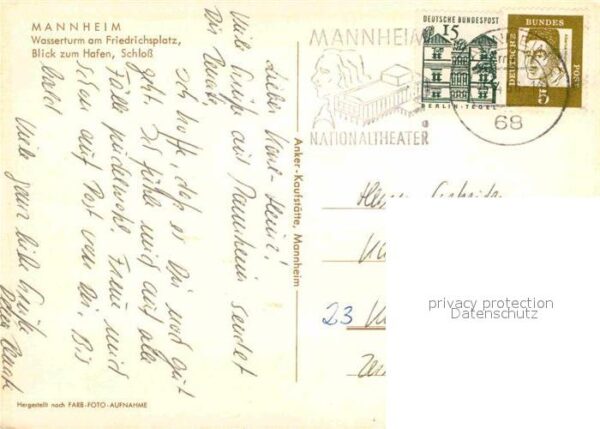 MANNHEIM
Wasserturm am Friedrichsplatz,
Blick zum Hafen, Schloß
MANNHEIM
NATIONALTHEATER
DEUTSCHE BUNDESPOST
15
BERLIN-TEGEL
DEUTSCHE
BUNDES
POST
5
68
Viele Grüße aus Mannheim sendet
Dir Renate.
Lieber Karl-Heinz!
Ich hoffe, daß es Dir noch gut
geht. Ich fühle mich auf alle
Fälle pudelwohl. Freue mich
schon auf Post von Dir. Bis
bald
Viele ganz liebe Grüße
Deine Renate
Anker-Kaufstätte, Mannheim
Herrn
23
privacy protection
Datenschutz
Hergestellt nach FARB-FOTO-AUFNAHME